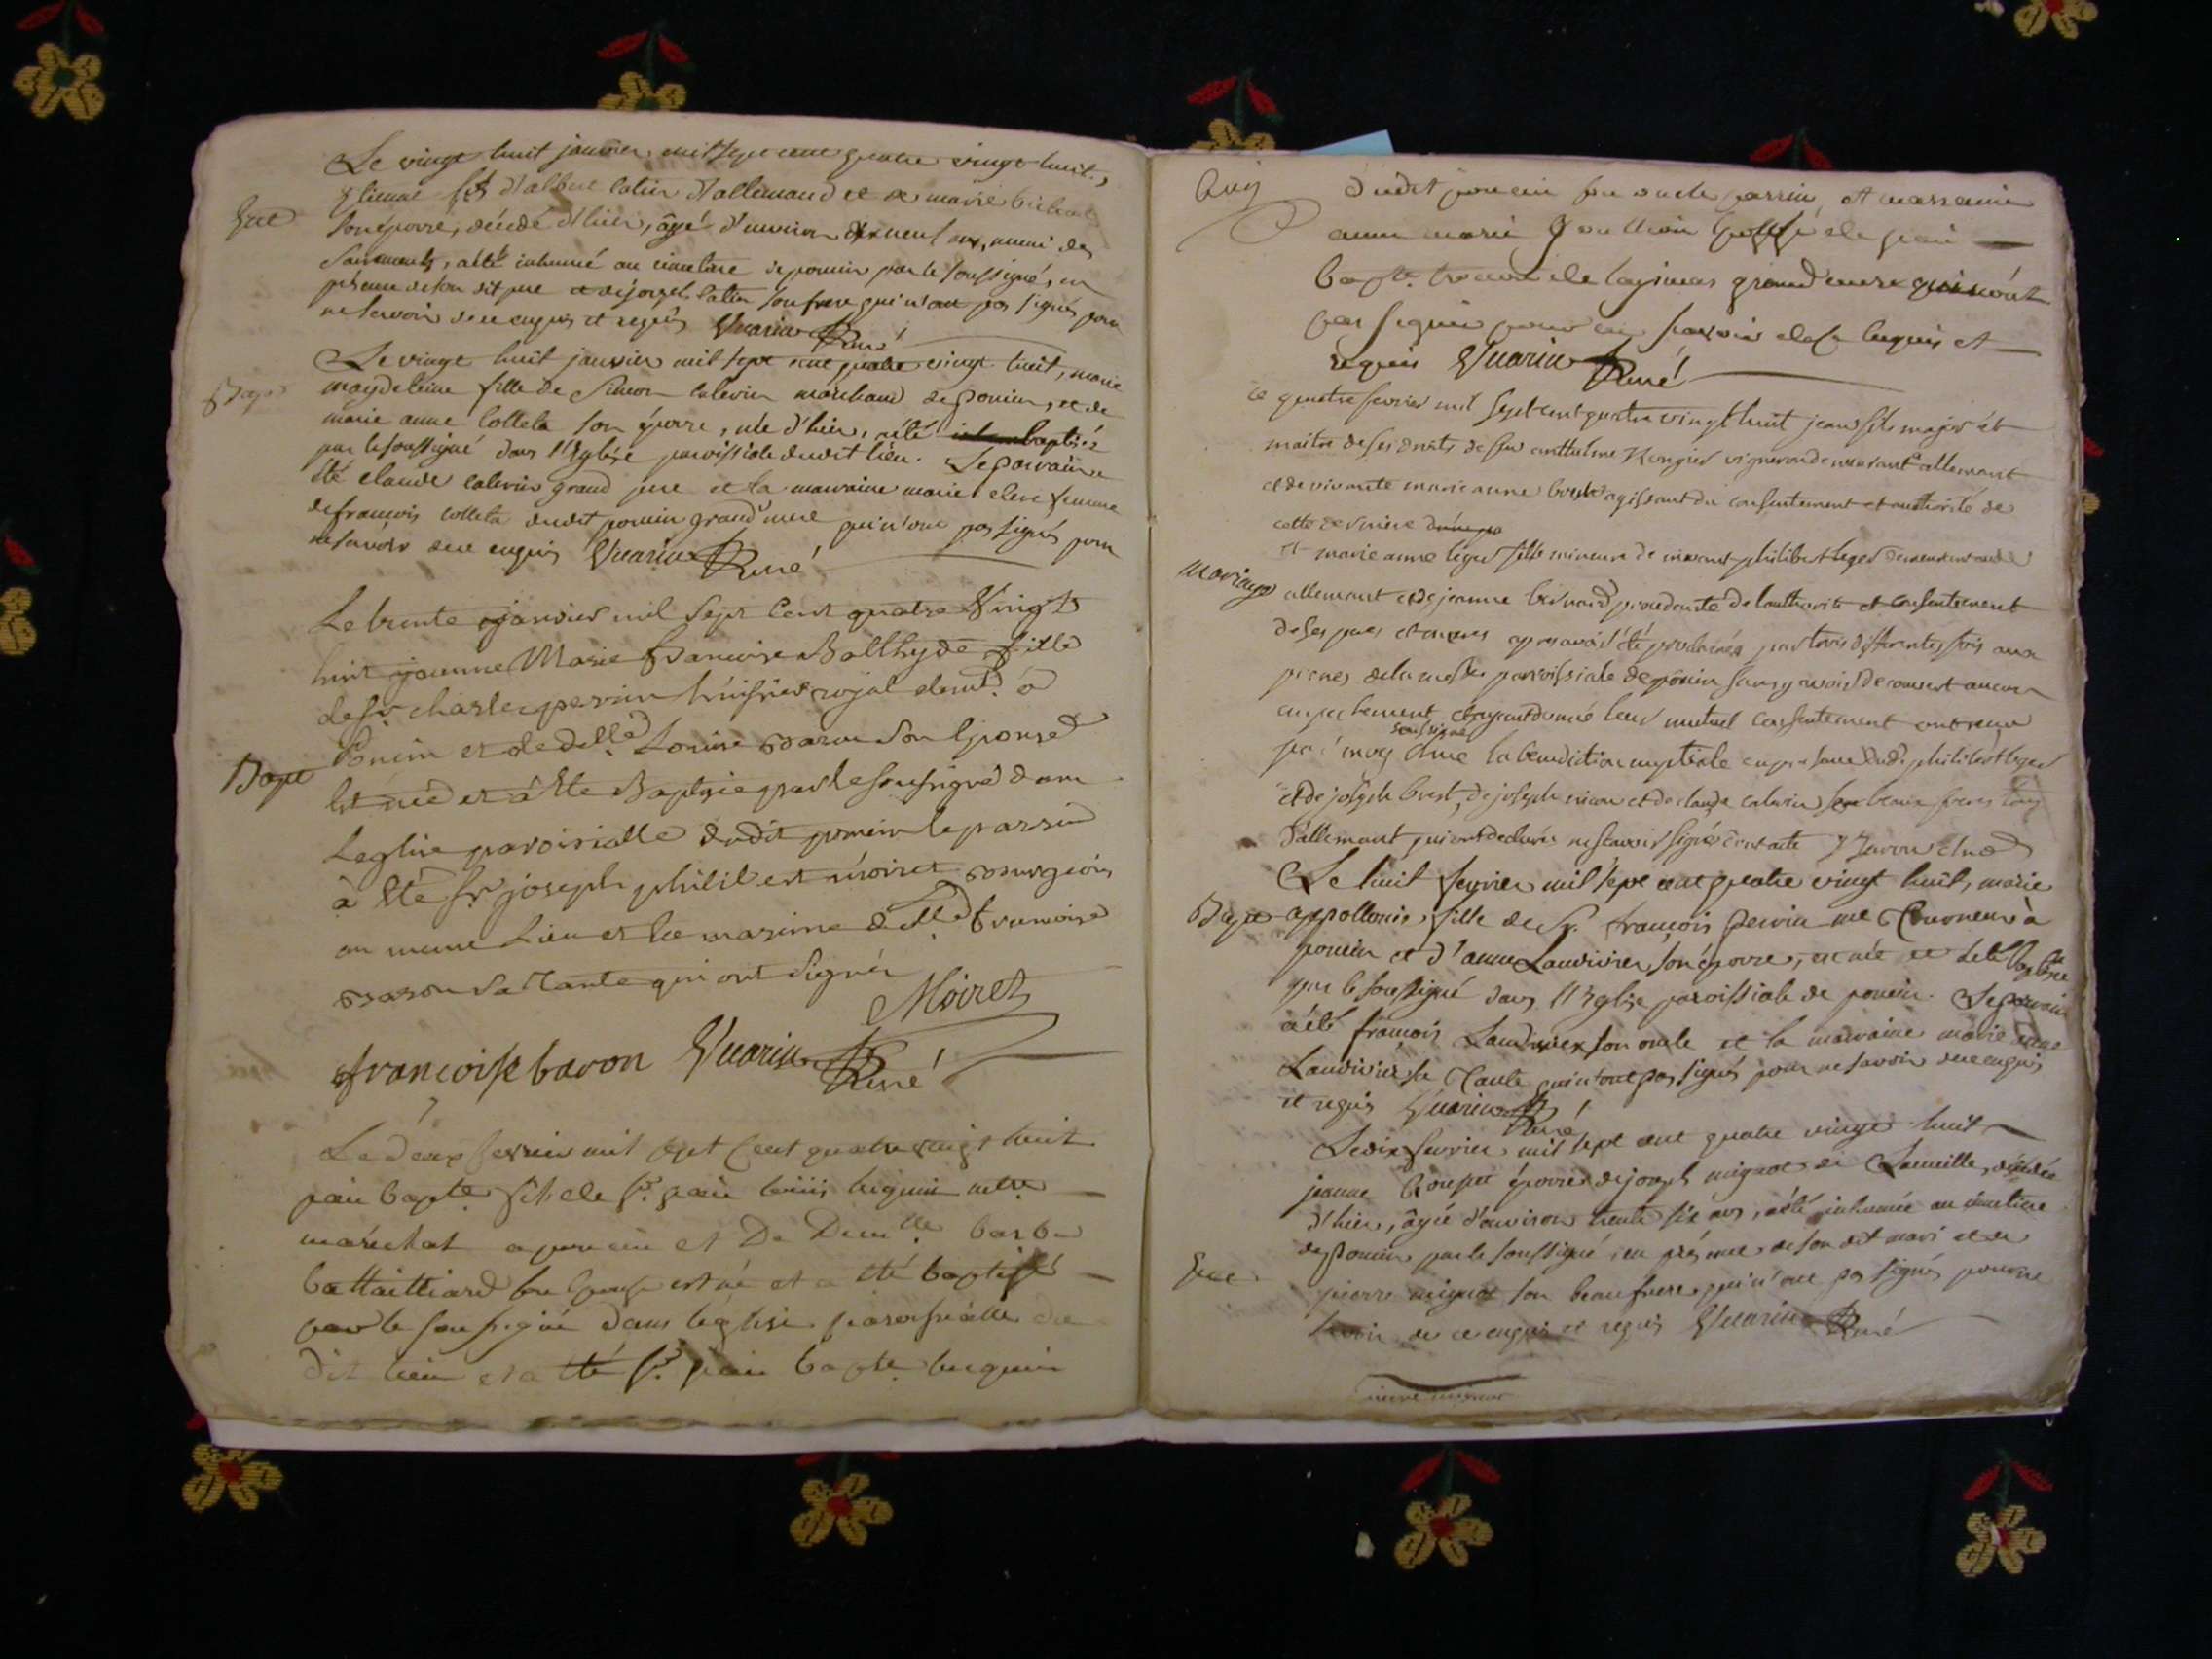 Le vingt huit janvier mil sept cent quatre vingt huit,
Etienne fils d'albue Catin d'allemand et de marie
son épouse, décédé d'hier, âgé d'environ dixneuf ans, muni des
sacrements, a été inhumé au cimetiere de poncin par le soussigné, en
présence de son dit pere et de joseph Catin son frere qui n'ont pas signés pour
ne savoir de ce enquis et requis Vuarin Curé
Le vingt huit janvier mil sept cent quatre vingt huit, marie
Bapt magdeleine fille de Simon Calevin marchand de poncin, et de
marie anne Colleta son épouse, née d'hier, a été baptisée
par le soussigné dans l'Eglise paroissiale dudit lieu. Le parrain a
été claude calevin grand pere et la marraine marie clere femme
de françois Colleta dudit poncin grand'mere qui n'ont pas signés pour
ne savoir de ce enquis Vuarin Curé
Le trente janvier mil sept Cent quatre Vingt
huit jeanne Marie françoise Balthyde fille
de sr. charles perrin huissier royal demt. a
Poncin et de delle Louise Baron son Epouse
Bapt Est née et a Ete Baptisée par le soussigné dans
Leglise paroisialle dudit poncin le parrin
à Eté sr. joseph philibert moiret Bourgeois
au meme Lieu et la marine delle francoise
Baron sa Tante qui ont Signés
Moiret
françoise baron Vuarin Curé
Le deux fevrier mil sept Cent quatre vingt huit
jean bapte. fils de sr. jean louis luquin mtre
maréchal a poncin et De Demlle barbe
battailliard son Epouse est né et a été baptisé
par le soussigné dans leglise paroissialle du
dit lieu et a été sr. jean bapte. luquin
dudit poncin son oncle parrin, et marraine
anne marie Epouse de jean
bapt. grand mere qui n'ont
pas signer pour ne scavoir de ce enquis et
requis Vuarin Curé
Ce quatre fevrier mil sept cent quatre vingt huit jean fils majeur et
maitre de ses droits de feu anthelme vigneron demeurant allemant
et de vivante marie anne agissant du consentement et authorité de
cette derniere
et marie anne leger fille mineure de vivant philibert leger demeurant aude
mariage allemant et de jeanne bernard procedante de l'authorité et consentement
de ses pere et mere apres avoir été proclamés par trois differentes fois aux
prones de la messe parroissiale de poncin sans y avoir decouvert aucun
empechement et ayant donné leur mutuel consentement ont reçu
par moy soussigné la benediction nuptiale en presence dudt. philibert leger
et de joseph brest, de joseph et de claude calevin ses beaux freres tous
d'allemant qui ont declarés ne scavoir signés
Le huit fevrier mil sept cent quatre vingt huit, marie
Bapt appollonie fille de Sr. françois perrin me à
poncin et d'anne Laudivier son épouse, est née et a été baptisée
par le soussigné dans l'Eglise paroissiale de poncin. Le parrain
a été françois Laudivier son oncle et la marraine marie anne
Laudivier sa Tante qui n'ont pas signés pour ne savoir de ce enquis
et requis Vuarin Curé
Le dix fevrier mil sept cent quatre vingt huit
jeanne épouse de joseph mignot de décédée
d'hier, âgée d'environ trente six ans, a été inhumée au cimetiere
de poncin par le soussigné, en présence de son dit mari et de
pierre mignot son beaufrere, qui n'ont pas signés pour ne
savoir de ce enquis et requis Vuarin Curé